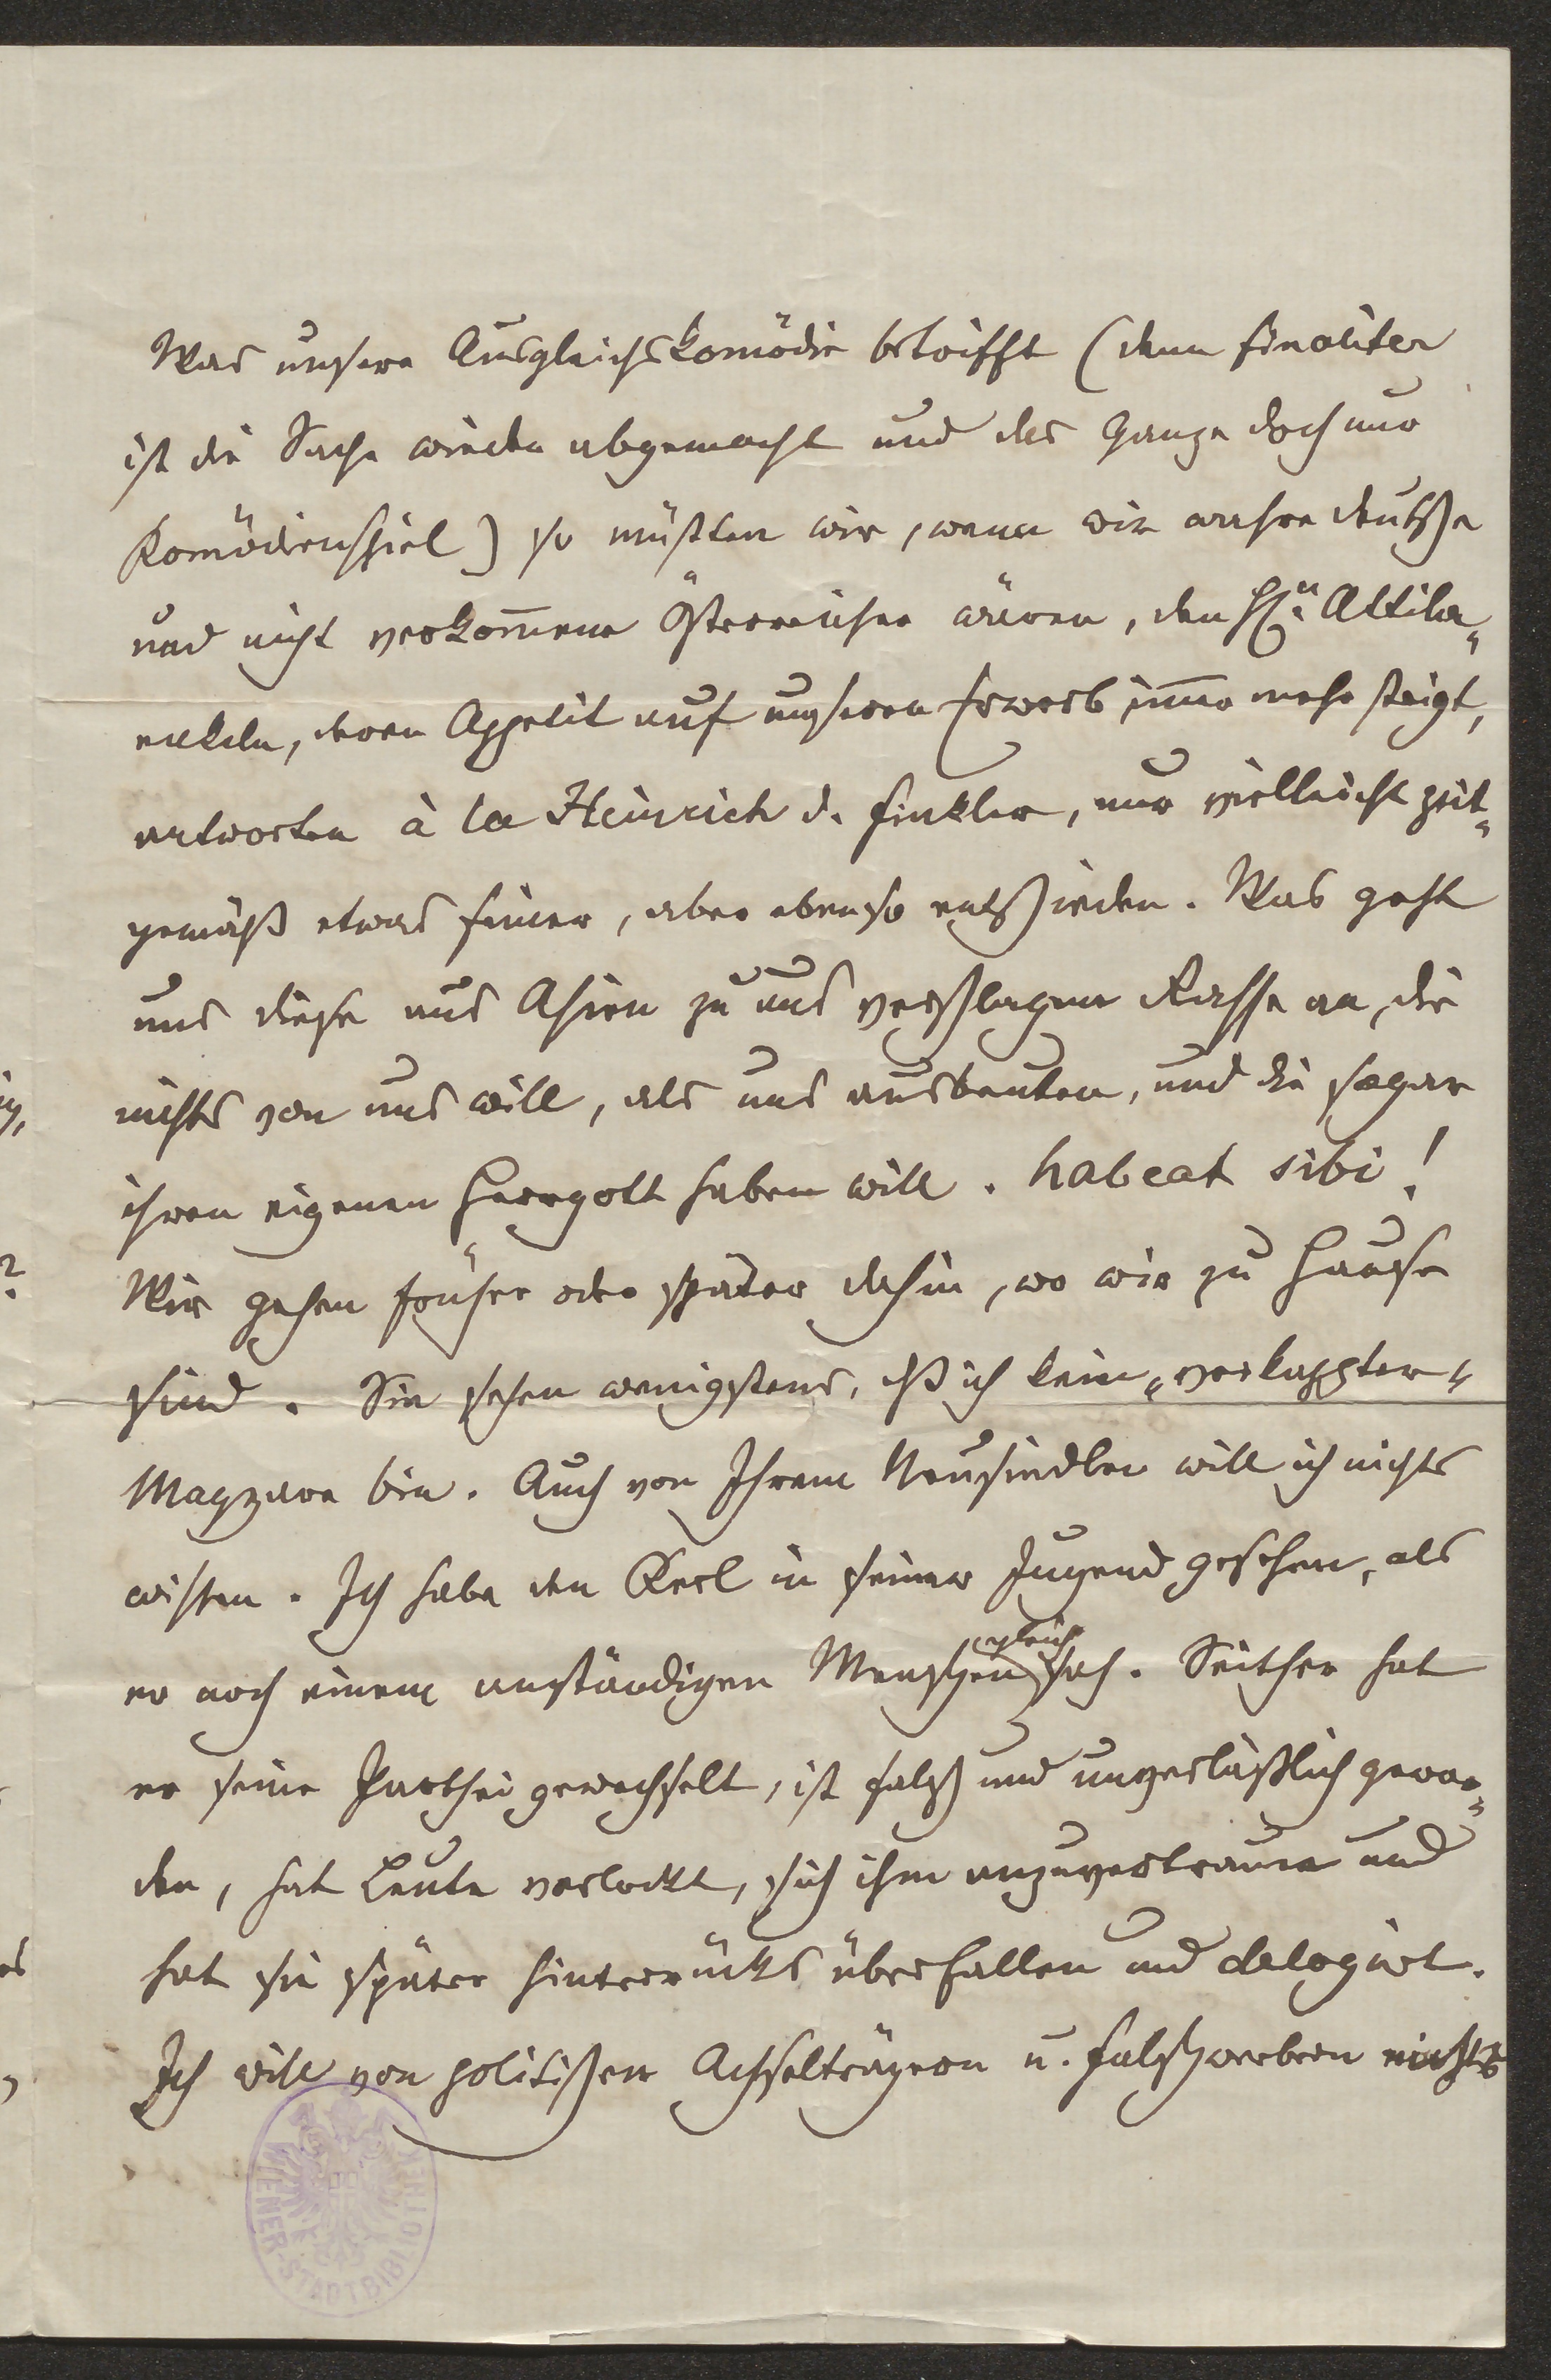 Was unsere Ausgleichskomödie betrifft (denn finaliter
ist die Sache wieder abgemacht und das Ganze doch nur
Komödienspiel) so müßten wir, wenn wir wahre Deutsche
und nicht verkom̅ene Österreicher wären, den H. Attila„
enkeln, deren Appetit auf unseren Erwerb im̅er mehr steigt,
antworten à la Heinrich d. Finkler, nur vielleicht zeit„
gemäß etwas feiner, aber ebenso entschieden. Was geht
uns diese aus Asien zu uns verschlagene Rasse an, die
nichts von uns will, als uns ausbeuten, und die sogar
ihren eigenen Herrgott haben will. habeat sibi!
Wir gehen früher oder später dahin, wo wir zu Hause
sind. Sie sehen wenigstens, dß ich kein „verkappter“
Magyare bin. Auch von Ihrem Neusiedler will ich nichts
wissen. Ich habe den Kerl in seiner Jugend gesehen, als
er noch einem anständigen Menschen gleich sah. Seither hat
er seine Parthei gewechselt, ist falsch und unverläßlich gewor„
den, hat Leute verlockt, sich ihm anzuvertrauen und
hat sie später hinterrücks überfallen und delogirt.
Ich will von politischen Achselträgern u. Falschwerbern nichts
WIENER STADTBIBLIOTHEK